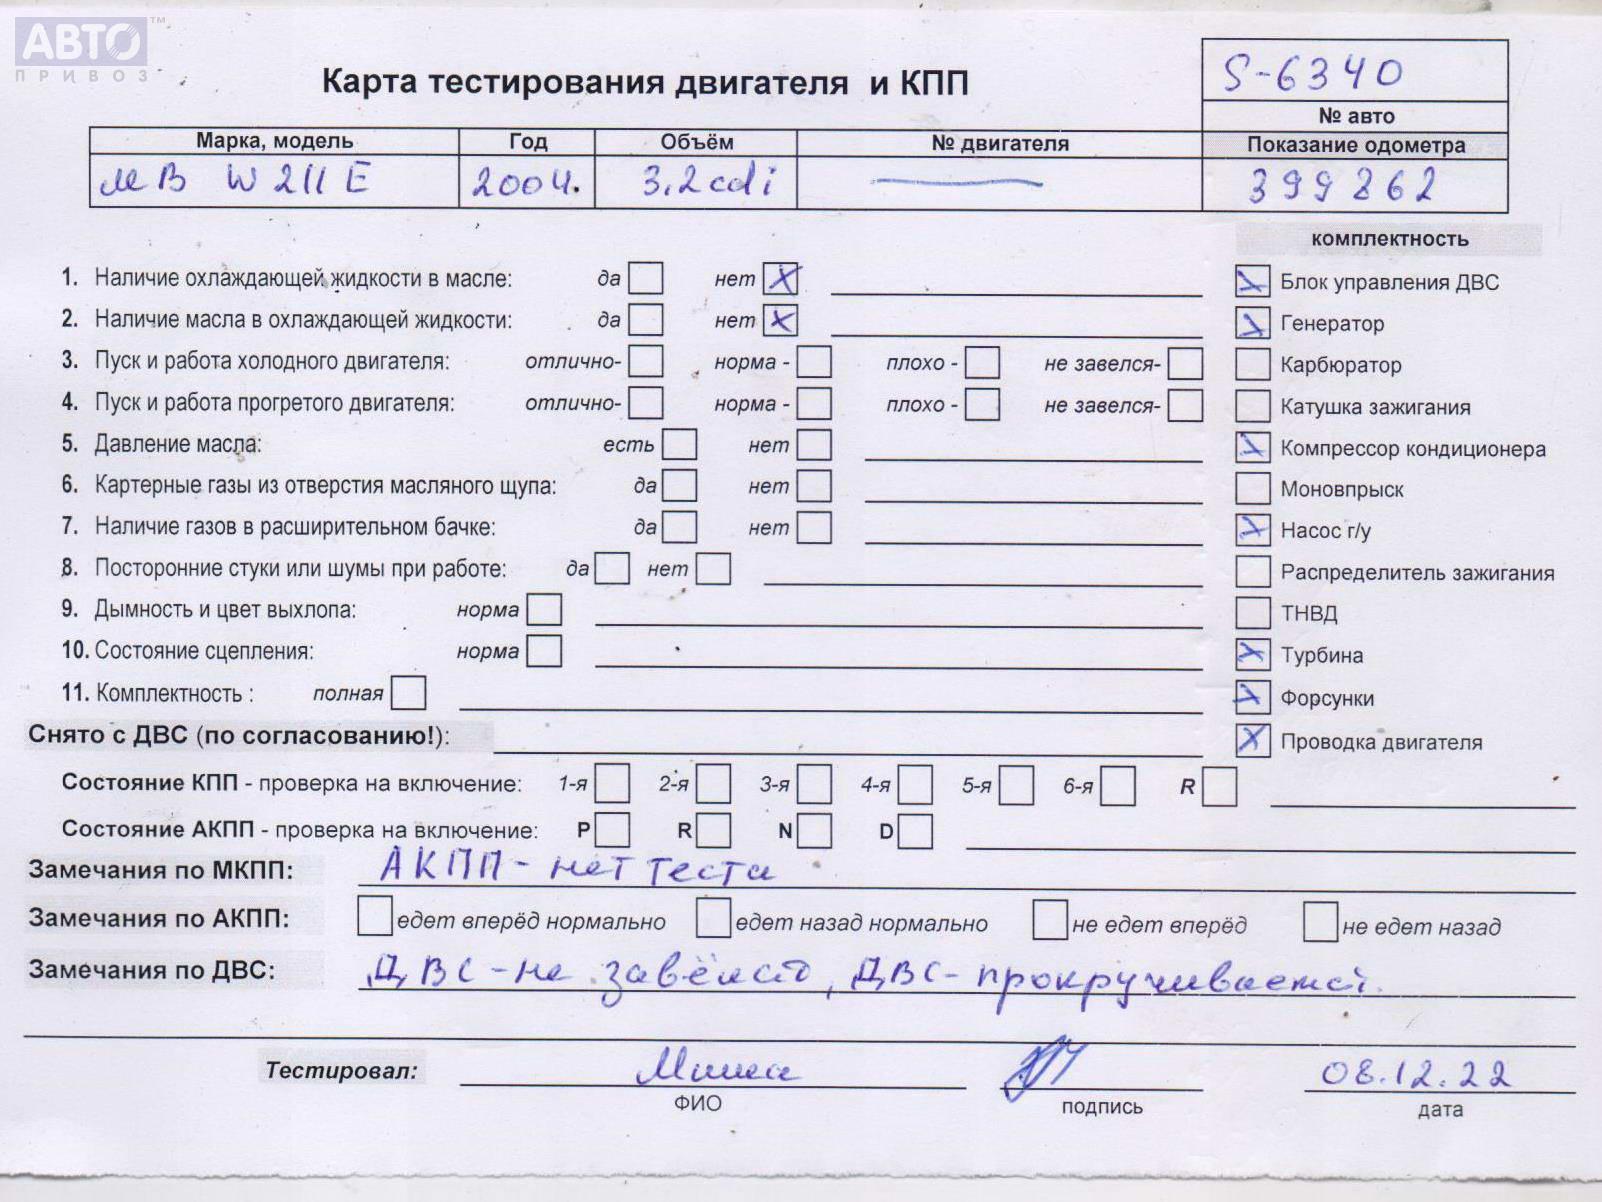 АВТО™
ПРИВОЗ
Карта тестирования двигателя и КПП
S-6340
№ авто
Марка, модель Год Объём № двигателя Показание одометра
МВ W211E 2004. 3.2cdi 399262
комплектность
1. Наличие охлаждающей жидкости в масле: да нет X Блок управления ДВС
2. Наличие масла в охлаждающей жидкости: да нет X Генератор
3. Пуск и работа холодного двигателя: отлично- норма - плохо - не завелся- Карбюратор
4. Пуск и работа прогретого двигателя: отлично- норма - плохо - не завелся- Катушка зажигания
5. Давление масла: есть нет Компрессор кондиционера
6. Картерные газы из отверстия масляного щупа: да нет Моновпрыск
7. Наличие газов в расширительном бачке: да нет Насос г/у
8. Посторонние стуки или шумы при работе: да нет Распределитель зажигания
9. Дымность и цвет выхлопа: норма ТНВД
10. Состояние сцепления: норма Турбина
11. Комплектность : полная Форсунки
Снято с ДВС (по согласованию!): Проводка двигателя
Состояние КПП - проверка на включение: 1-я 2-я 3-я 4-я 5-я 6-я R
Состояние АКПП - проверка на включение: P R N D
Замечания по МКПП: АКПП - нет теста
Замечания по АКПП: едет вперёд нормально едет назад нормально не едет вперёд не едет назад
Замечания по ДВС: ДВС - не завёлся, ДВС - прокручивается.
Тестировал: Миша 08.12.22
ФИО подпись дата